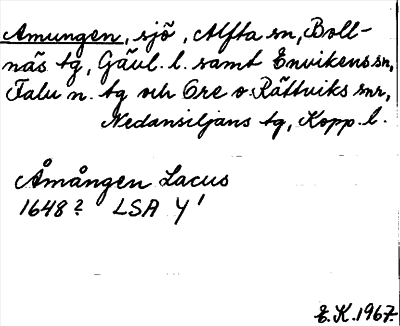 Amungen, sjö, Alfta sn, Boll-
näs tg, Gävl. l. samt Envikens sn,
Falu n. tg och Ore o Rättviks snr,
Nedansiljans tg, Kopp. l.
Åmången Lacus
1648? LSA Y'
E.K. 1967.